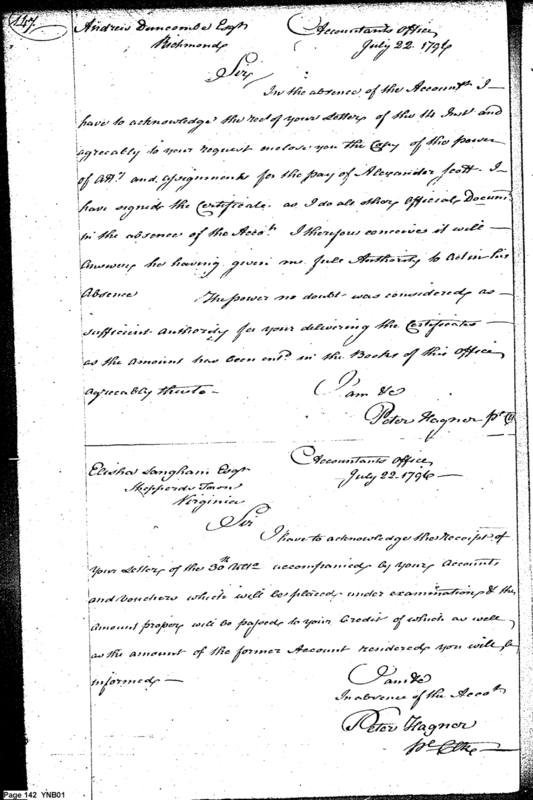 147.
Andrew Duncombe Esqr
Richmond
Accountants Office
July 22. 1796
Sir,
In the absence of the Accountt. I
have to acknowledge the rect of your Letter of the 14 Inst and
agreeably to your request enclose you the Copy of the power
of atty. and assignments for the pay of Alexander Scott. I
have signed the Certificate as I do all other Official Docum
in the absence of the Accot. I therefore conceive it will
answer, he having given me full Authority to act in his
absence The power no doubt was considered as
sufficient authority for your delivering the Certificates
as the amount has been entd in the Books of this Office
agreeably thereto
I am &c
Peter Hagner
Elisha Langham Esqr
Shepperds Town
Virginia
Accountants Office
July 22. 1796
Sir
I have to acknowledge the receipt of
Your Letter of the 30th Ulto accompanied by your Accounts
and vouchers which will be placed under examination & the
amount proper will be passed to your Credit of which as well
as the amount of the former Account rendered you will be
informed
I am &c
In absence of the Accot
Peter Hagner
Page 142 YNB01